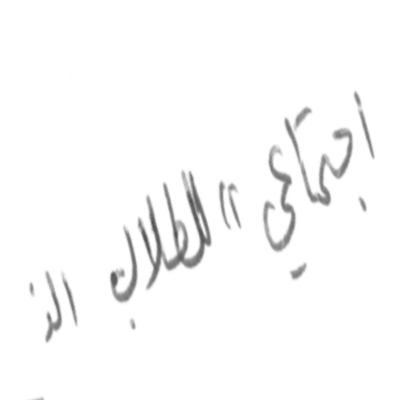 اجتماعي " الطلاب الذ